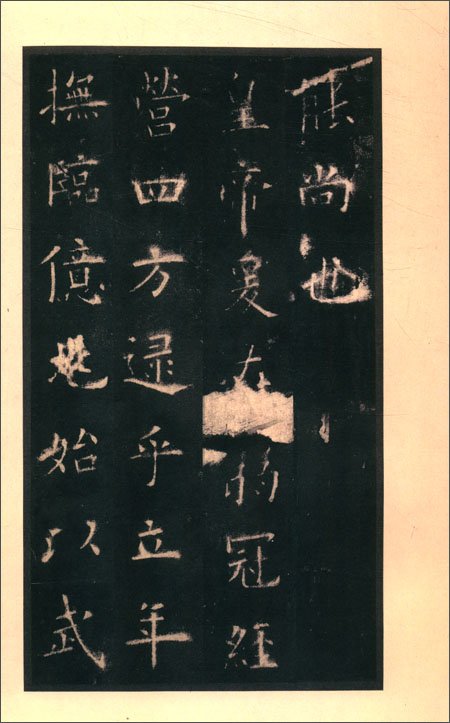 能尚也
皇帝爰在弱冠經
營四方逮乎立年
撫臨億兆始以武